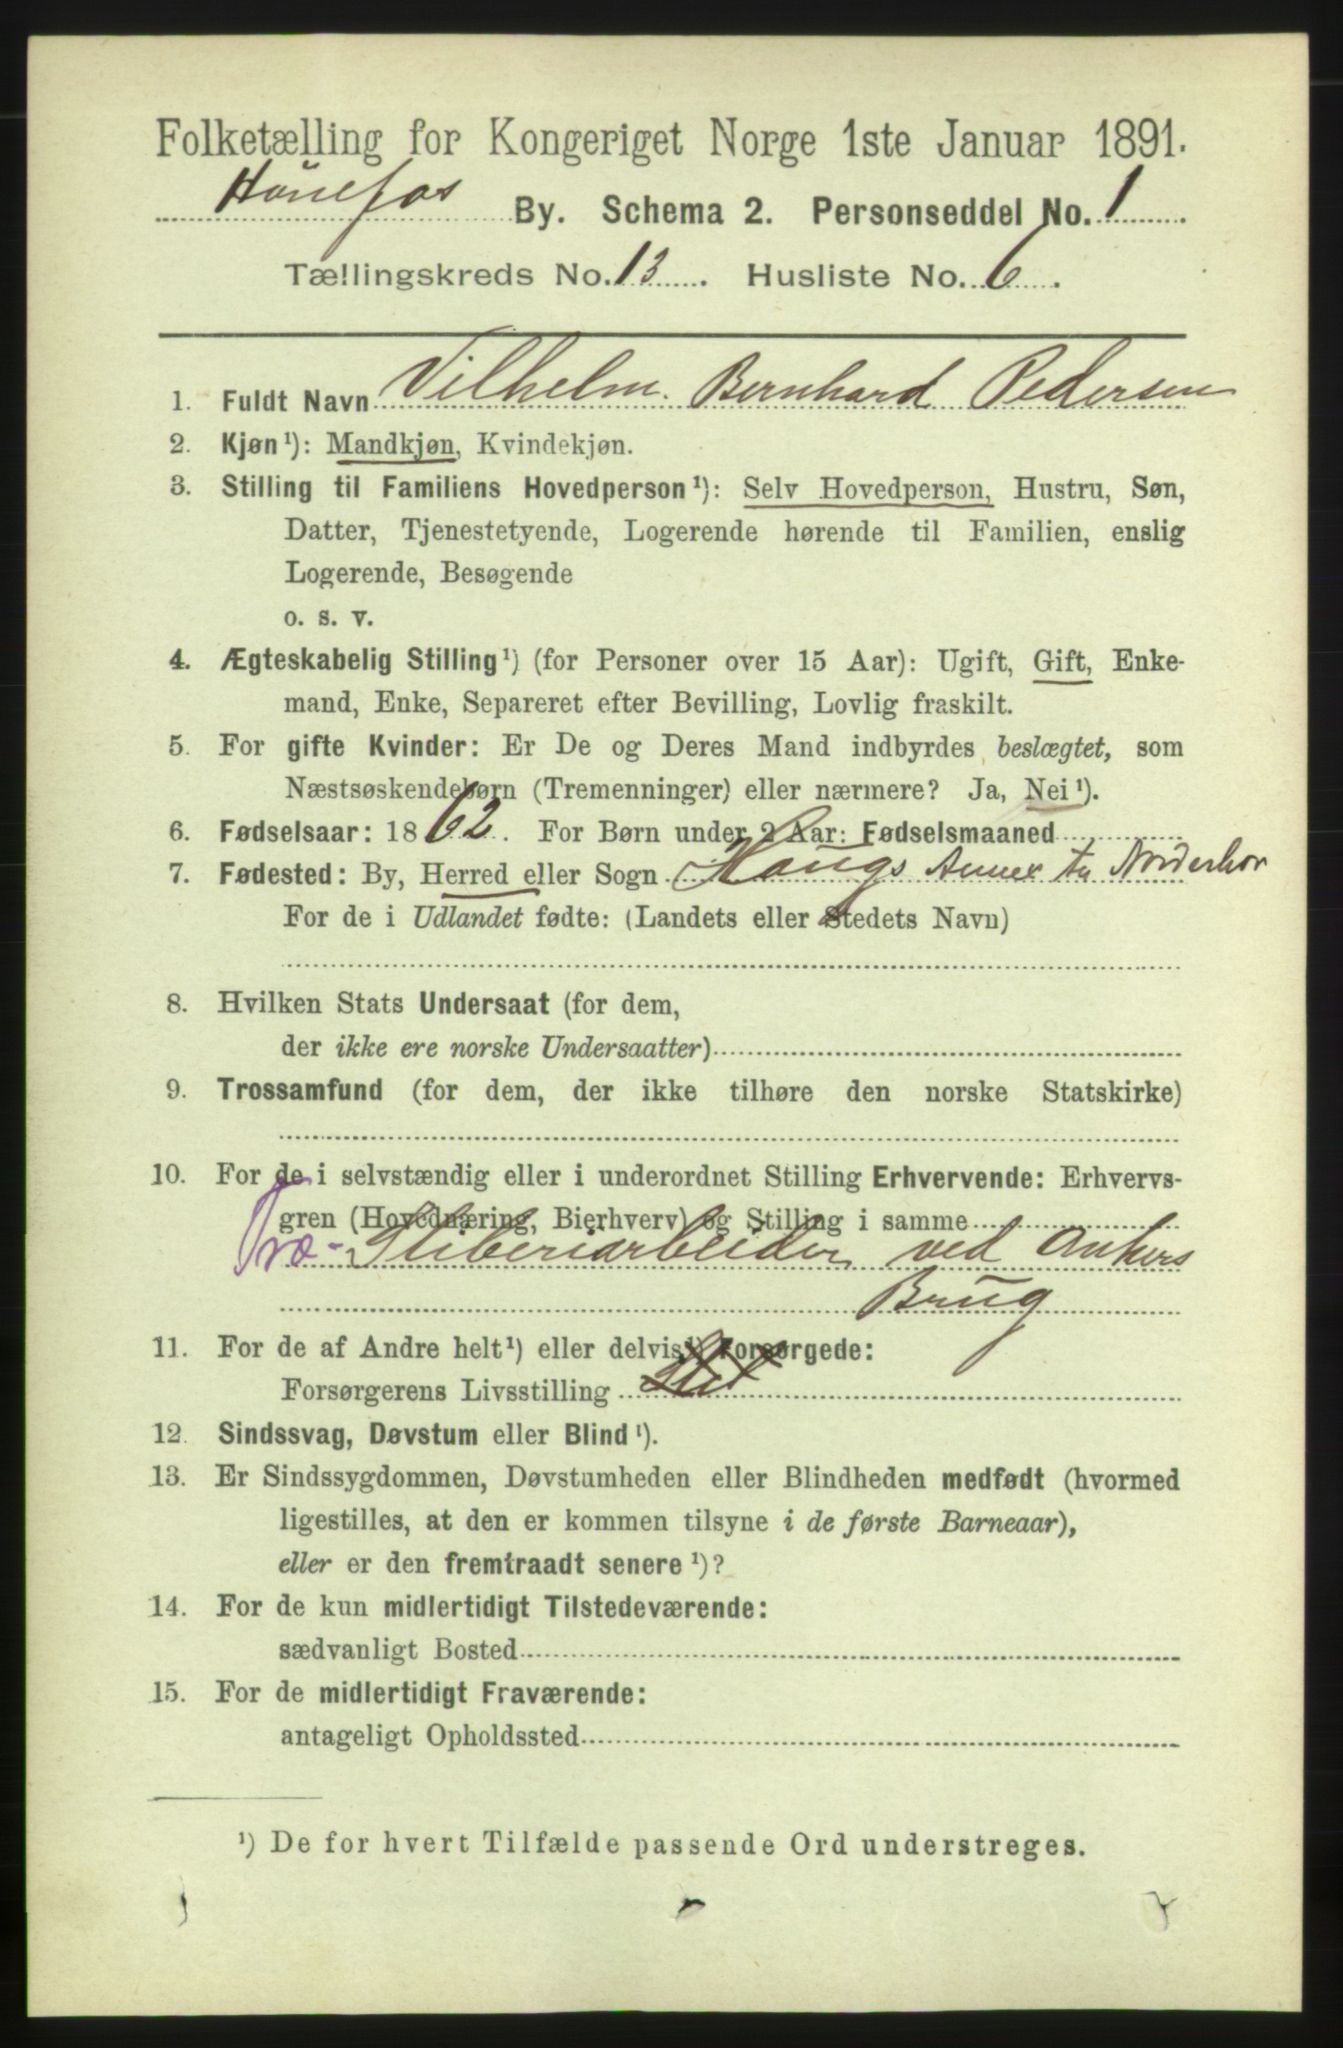 Folketælling for Kongeriget Norge 1ste Januar 1891.
Hønefos By. Schema 2. Personseddel No. 1
Tællingskreds No. 13. Husliste No. 6.
1. Fuldt Navn Vilhelm Bernhard Pedersen
2. Kjøn¹): Mandkjøn, Kvindekjøn.
3. Stilling til Familiens Hovedperson¹): Selv Hovedperson, Hustru, Søn,
Datter, Tjenestetyende, Logerende hørende til Familien, enslig
Logerende, Besøgende
o. s. v.
4. Ægteskabelig Stilling¹) (for Personer over 15 Aar): Ugift, Gift, Enke-
mand, Enke, Separeret efter Bevilling, Lovlig fraskilt.
5. For gifte Kvinder: Er De og Deres Mand indbyrdes beslægtet, som
Næstsøskendebørn (Tremenninger) eller nærmere? Ja, Nei¹).
6. Fødselsaar: 1862. For Børn under 2 Aar: Fødselsmaaned
7. Fødested: By, Herred eller Sogn Haugs Annex til Norderhov
For de i Udlandet fødte: (Landets eller Stedets Navn)
8. Hvilken Stats Undersaat (for dem,
der ikke ere norske Undersaatter)
9. Trossamfund (for dem, der ikke tilhøre den norske Statskirke)
10. For de i selvstændig eller i underordnet Stilling Erhvervende: Erhvervs-
gren (Hovednæring, Bierhverv) og Stilling i samme
Træ-Sliberiarbeider ved Ankers
Brug
11. For de af Andre helt¹) eller delvis¹) Forsørgede:
Forsørgerens Livsstilling
12. Sindssvag, Døvstum eller Blind¹).
13. Er Sindssygdommen, Døvstumheden eller Blindheden medfødt (hvormed
ligestilles, at den er kommen tilsyne i de første Barneaar),
eller er den fremtraadt senere¹)?
14. For de kun midlertidigt Tilstedeværende:
sædvanligt Bosted
15. For de midlertidigt Fraværende:
antageligt Opholdssted
¹) De for hvert Tilfælde passende Ord understreges.